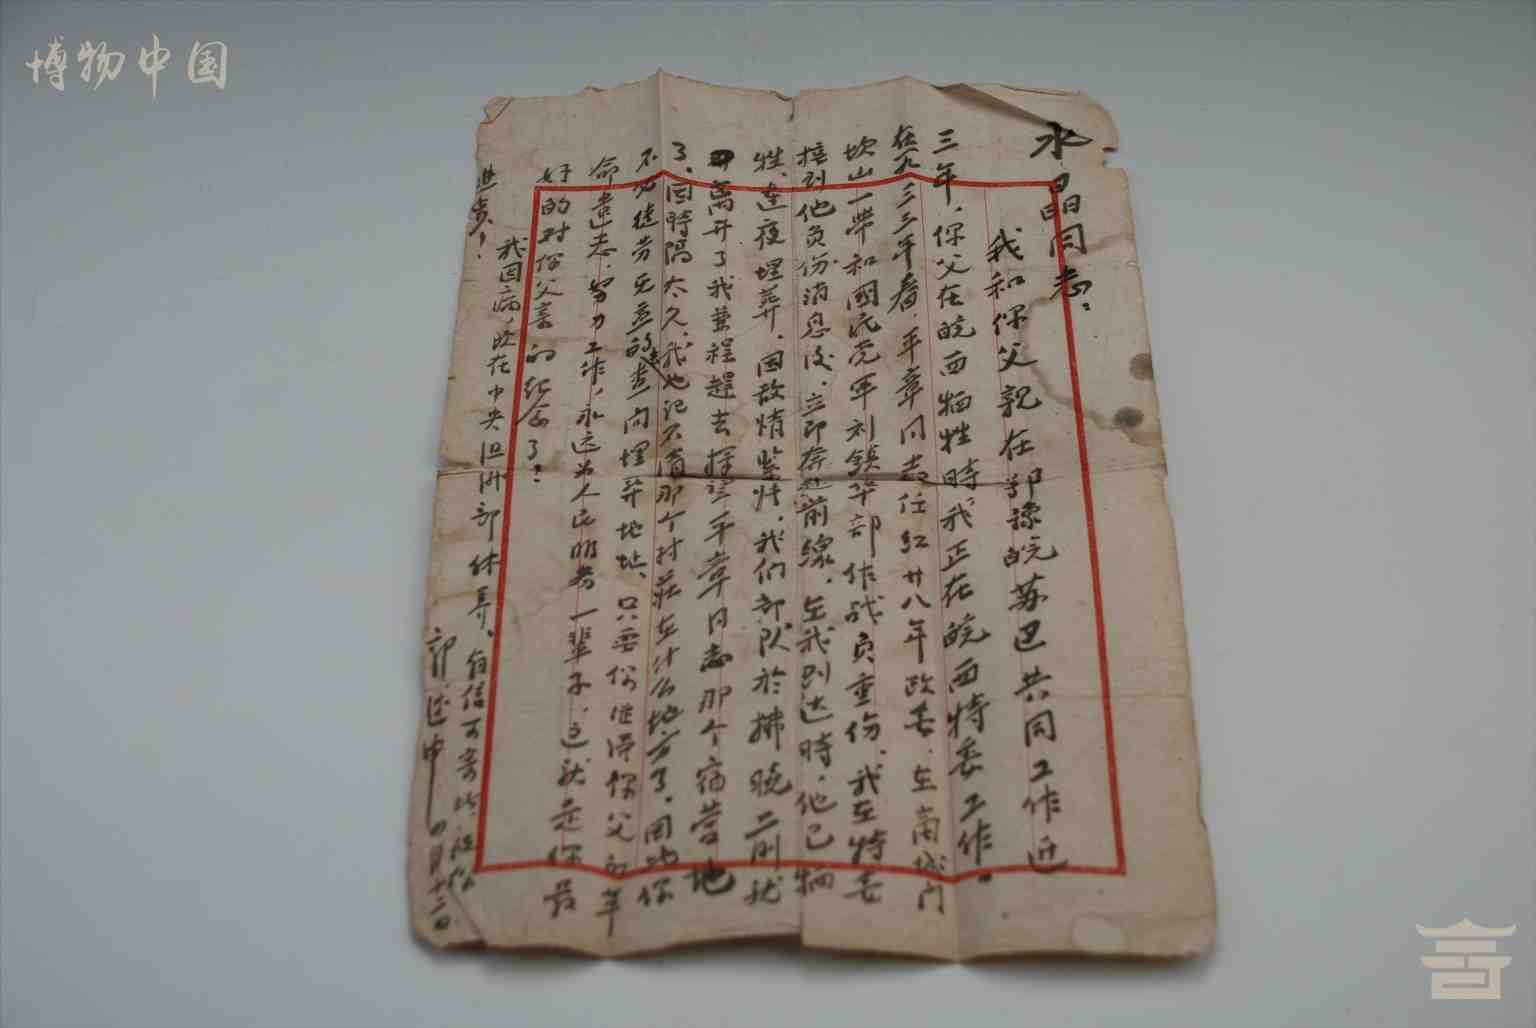 博物中国
水晶同志：
我和你父親在鄂豫皖苏区共同工作近
三年，你父在皖西牺牲時，我正在皖西特委工作。
在一九三三年春，平章同志任紅廿八年政委，在商城门
坎山一帶和國民党军刘鎮华部作战負重伤，我在特委
接到他負伤消息后，立即奔赴前線，在我到达時，他已牺
牲，連夜埋葬，因敌情紧张，我们部队於拂晓二时就
离开了我兼程趕去探望平章同志那个宿营地
了，因時隔太久，我也记不清那个村莊在什么地方了，因此你
不必徒劳无益的去查问埋葬地址，只要你继承你父的革
命遗志，努力工作，永远为人民服务一輩子，这就是你最
好的对你父亲的纪念了！
我因病，现在中央组织部休养，有信可寄此，祝你
进步！
郭述申
四月十二日